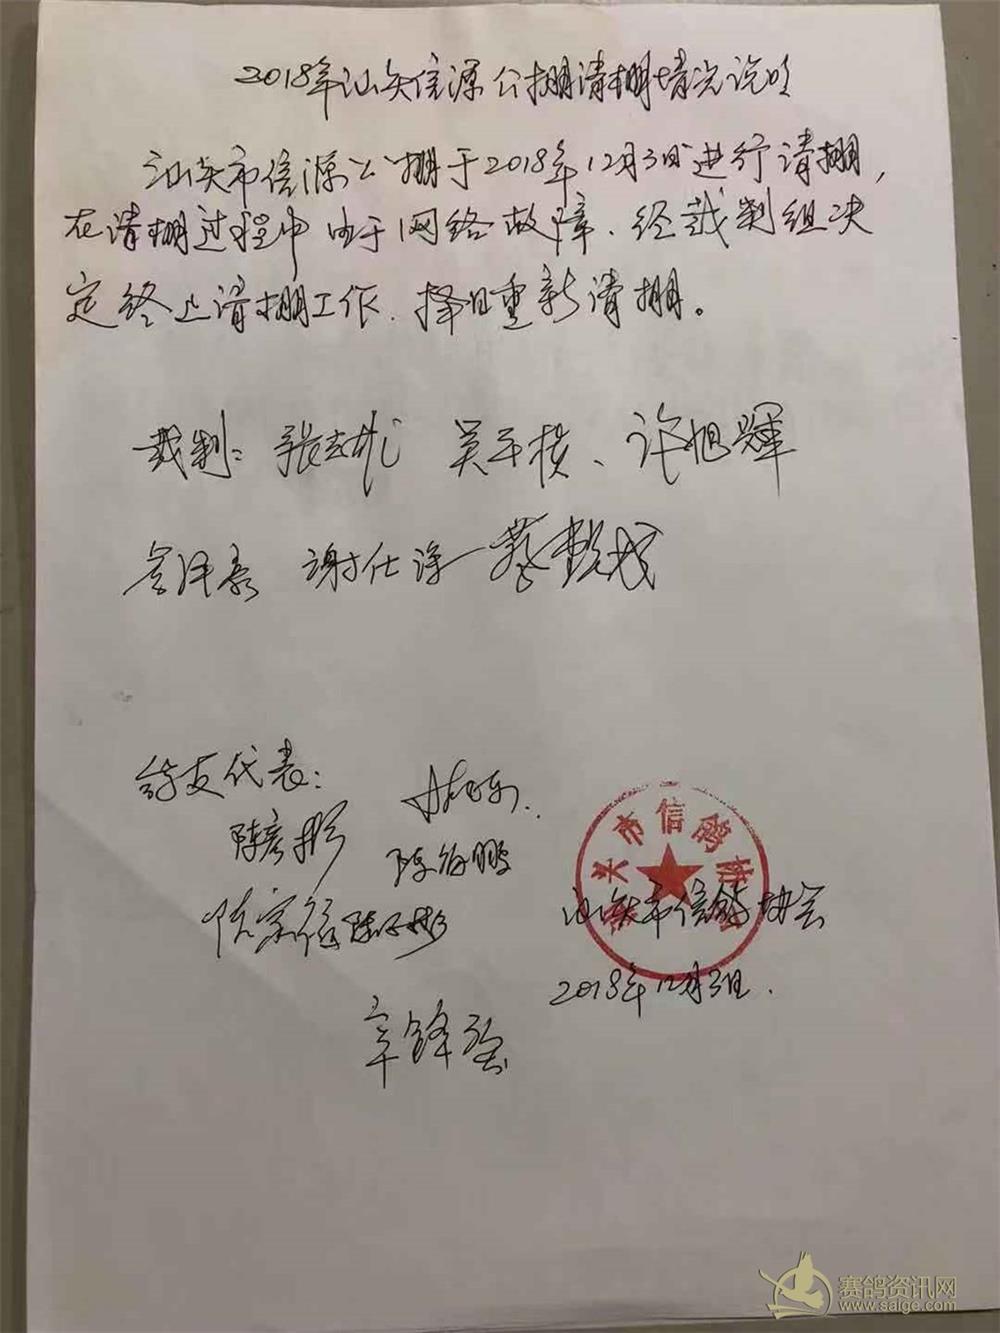 2018年汕头信源公棚清棚情况说明
汕头市信源公棚于2018年12月3日进行清棚，
在清棚过程中由于网络故障、经裁判组决
定终止清棚工作.择日重新清棚。
裁判: 吴平 、许旭辉
泽泰 谢仕 蔡
鸽友代表:
陈彦彬
陈 鹏
陈 彬
辛锋
头市信鸽协
汕头市信鸽协会
2018年12月3日.
赛鸽资讯网
www.saige.com